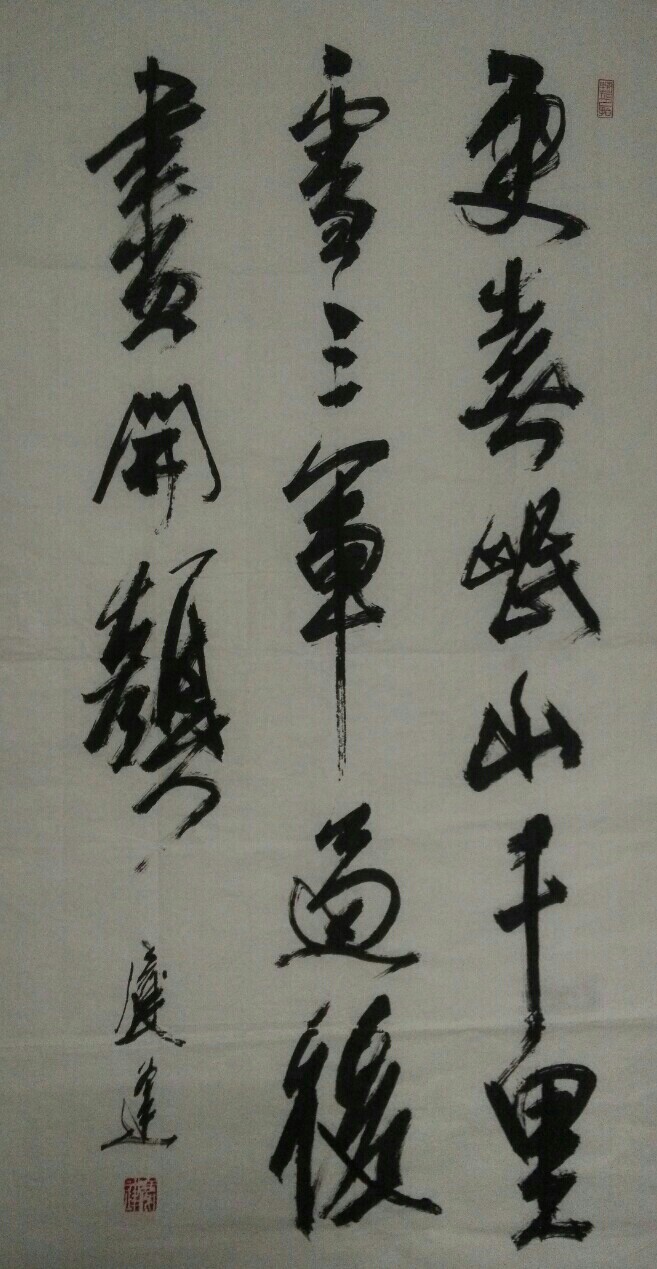 更喜岷山千里
雪三軍過後
盡開顏
慶